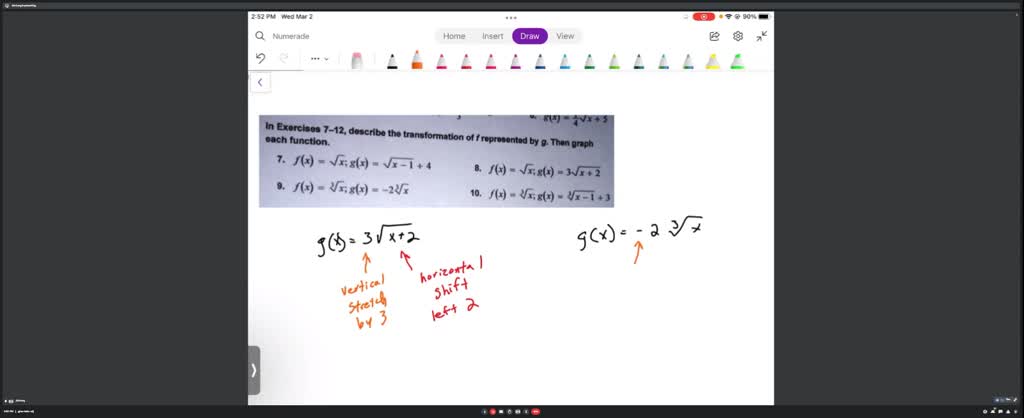 2:52 PM Wed Mar 2
90%
Numerade
Home Insert Draw View
g(x) = ¼√x + 5
In Exercises 7–12, describe the transformation of f represented by g. Then graph
each function.
7. f(x) = √x; g(x) = √(x − 1) + 4
8. f(x) = √x; g(x) = 3√(x + 2)
9. f(x) = ∛x; g(x) = −2∛x
10. f(x) = ∛x; g(x) = ∛(x − 1) + 3
g(x) = 3√(x+2)
vertical
stretch
by 3
horizontal
shift
left 2
g(x) = - 2 ∛x